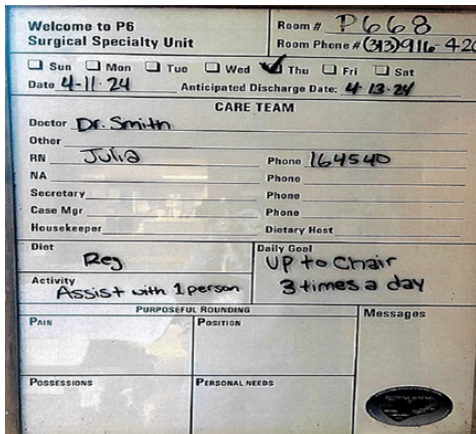 Welcome to P6 Room # P668
Surgical Specialty Unit Room Phone # (313)916-420
Sun Mon Tue Wed Thu Fri Sat
Date 4-11-24 Anticipated Discharge Date: 4-13-24
CARE TEAM
Doctor Dr. Smith
Other
RN Julia Phone 164540
NA Phone
Secretary Phone
Case Mgr Phone
Housekeeper Dietary Host
Diet Daily Goal
Reg UP to Chair
Activity 3 times a day
Assist with 1 person
PURPOSEFUL ROUNDING Messages
PAIN POSITION
POSSESSIONS PERSONAL NEEDS